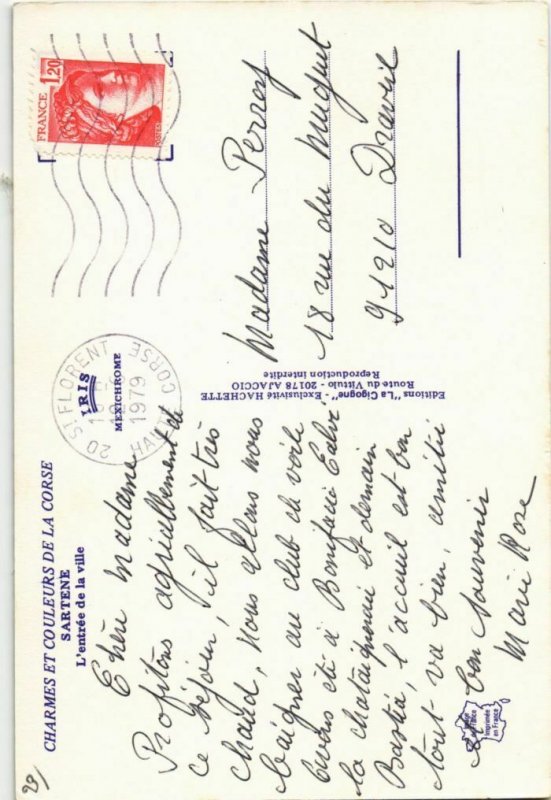 CHARMES ET COULEURS DE LA CORSE
SARTENE
L'entrée de la ville
Chère Madame
Profitons agréablement de
ce séjour, il fait très
chaud, nous allons nous
baigner au club de voile
avons été à Bonifacio Calvi
la chataigneraie et demain
Bastia, l'accueil est bon
tout va bien, amitié
et bon souvenir
Marie Rose
IRIS
MEXICHROME
20 ST FLORENT
1979
HAUTE CORSE
Editions "La Cigogne" - Exclusivité HACHETTE
Route du Vittulo - 20178 AJACCIO
Reproduction interdite
FRANCE 1,20
POSTES
Madame Perrof
18 rue du Muguet
91210 Draveil
Imprimé
en France
29/